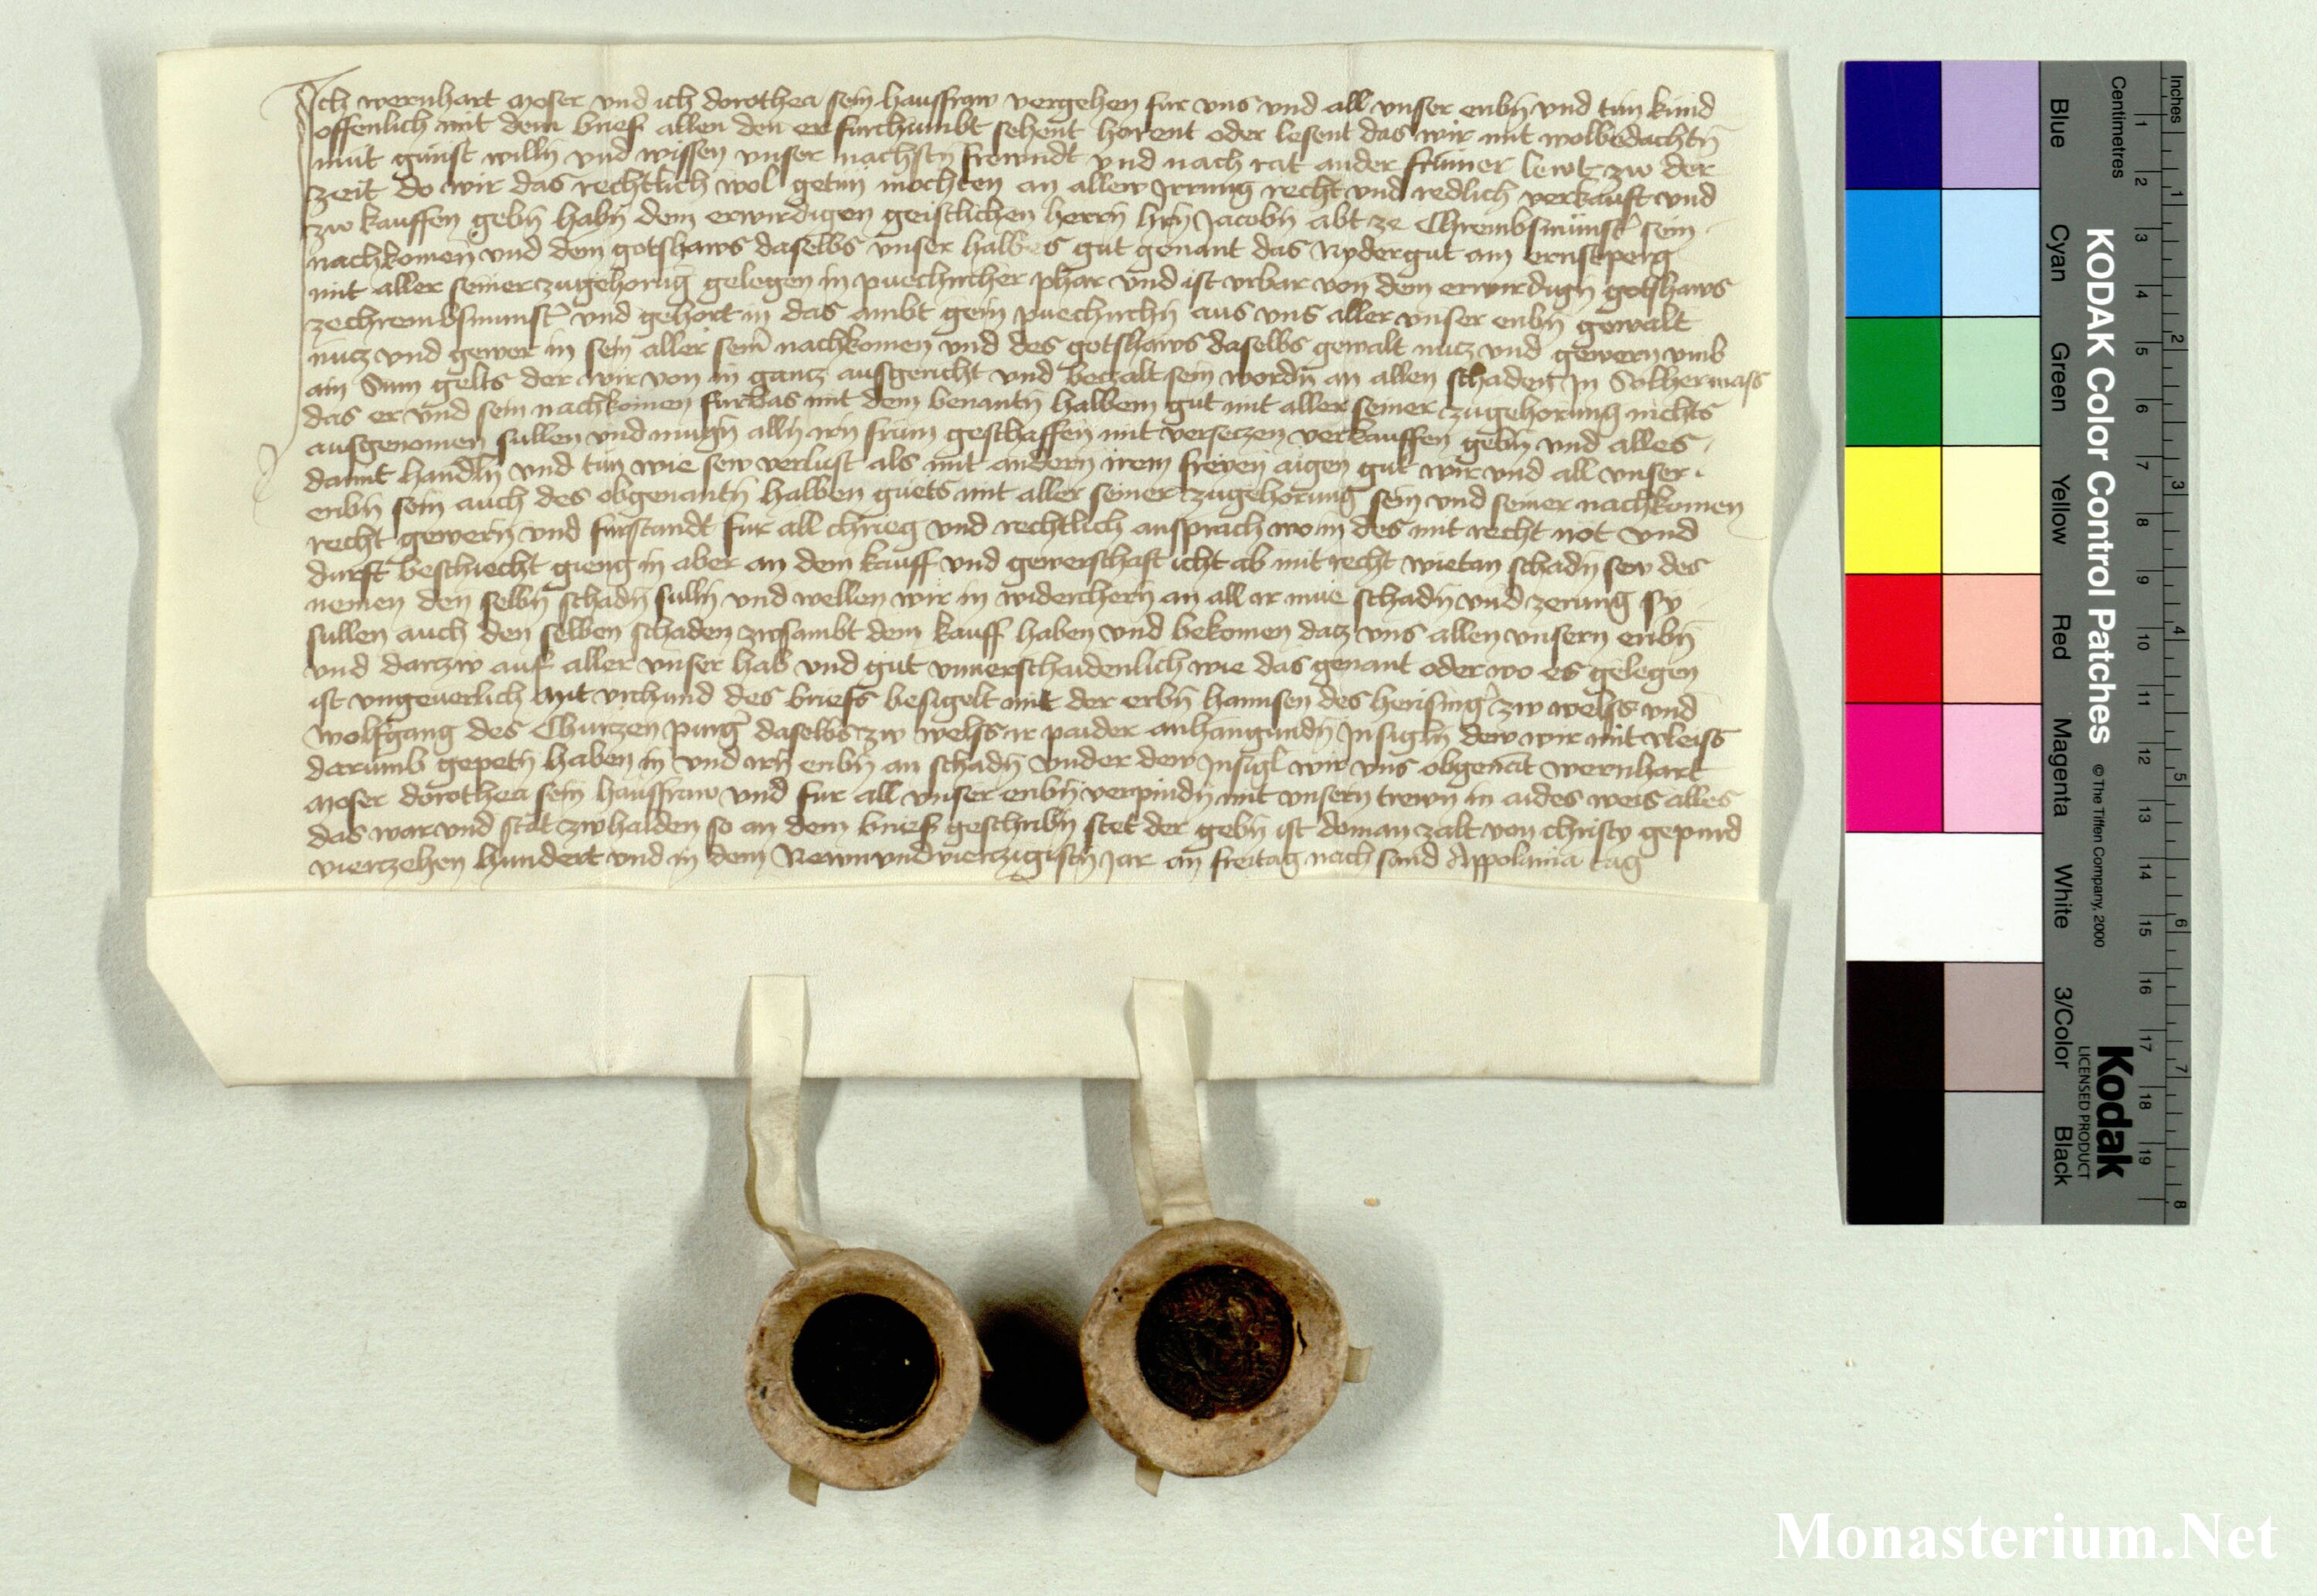 Ich wernhart moser vnd ich dorothea sein hausfraw vergehen fur vns vnd all vnser enbn̄ vnd tun kund
offenlich mit dem brief allen den er furchumbt sehent horent oder lesent das wir mit wolbedachtn̄
mut gunst willn̄ vnd wissen vnser nachstn̄ frewndt vnd nach rat ander frumer lewt zw der
zeit do wir das rechtlich wol getun mochten an allew Irrung recht vnd redlich verkauft vnd
zw kauffen gebn̄ habn̄ dem erwirdigen geistlichen herrn hrn̄ Jacobn̄ abt ze Chrembsmunstꝰ sein
nachkomen vnd dem gotshaws daselbs vnser halbes gut genant das Rydergut am ernstperg
mit aller seiner zugehorūg gelegen in puechircher phar vnd ist vrbar von dem erwirdign̄ gotshaws
zechrembsmunstꝰ vnd gehort in das ambt gein puechirchn̄ aus vns aller vnser enbn̄ gewalt
nutz vnd gewer in sein aller sein̄ nachkomen vnd des gotshaws daselbs gewalt nutz vnd gewern vmb
ain Sum gelts der wir von in gantz ausgericht vnd betzalt sein wordn̄ an allen schaden In Solher mass
das er vnd sein nachkomen furbas mit dem benantn̄ halbem gut mit aller seiner zugehorung nichts
ausgenomen sullen vnd mugn̄ alln̄ irn̄ frum geschaffen mit versetzen verkauffen gebn̄ vnd alles
damit handln̄ vnd tun wie sew verlust als mit andern irem freyen aigen gut wir vnd all vnser
enbn̄ sein auch des obgenantn̄ halben guets mit aller seiner zugehorung sein vnd seiner nachkomen
recht gewern vnd furstandt fur all chrieg vnd rechtlich ansprach wo in des mit recht not vnd
durft beschiecht gieng in aber an dem kauff vnd gewerschaft icht ab mit recht wietan schadn̄ sew des
nemen den selbn̄ schadn̄ sulln̄ vnd wellen wir in widerchern an all ir mue schadn̄ vnd zerung sy
sullen auch den selben schaden zwsambt dem kauff haben vnd bekomen datz vns allen vnsern enbn̄
vnd dartzw auf aller vnser hab vnd gut vnuerschaidenlich wie das genant oder wo es gelegen
ist vngeuerlich Mit vrchund des briefs besigelt mit der erbn̄ hannsen des hersingꝰ zw welss vnd
Wolfgang des Churtzen purgꝰ daselbs zw welss ir paider anhangundn̄ Insigln̄ dew wir mit vleiss
darumb gepetn̄ haben in vnd irn̄ enbn̄ an schadn̄ vnder dew Insigl wir vns obgenāt wernhart
moser dorothea sein hausfraw vnd fur all vnser enbn̄ verpindn̄ mit vnsern trewn in aides weis alles
das war vnd stat zwhalden so an dem brief geschribn̄ stet der gebn̄ ist do man zalt von christy gepurd
viertzehen hundert vnd in dem Newnvndviertzigistn̄ Jar an freitag nach sand Appolania tag
Inches
Centimetres
1 2 3 4 5 6 7 8 9 10 11 12 13 14 15 16 17 18 19
1 2 3 4 5 6 7 8
Blue Cyan Green Yellow Red Magenta White 3/Color Black
KODAK Color Control Patches © The Tiffen Company, 2000
Kodak
LICENSED PRODUCT
Monasterium.Net